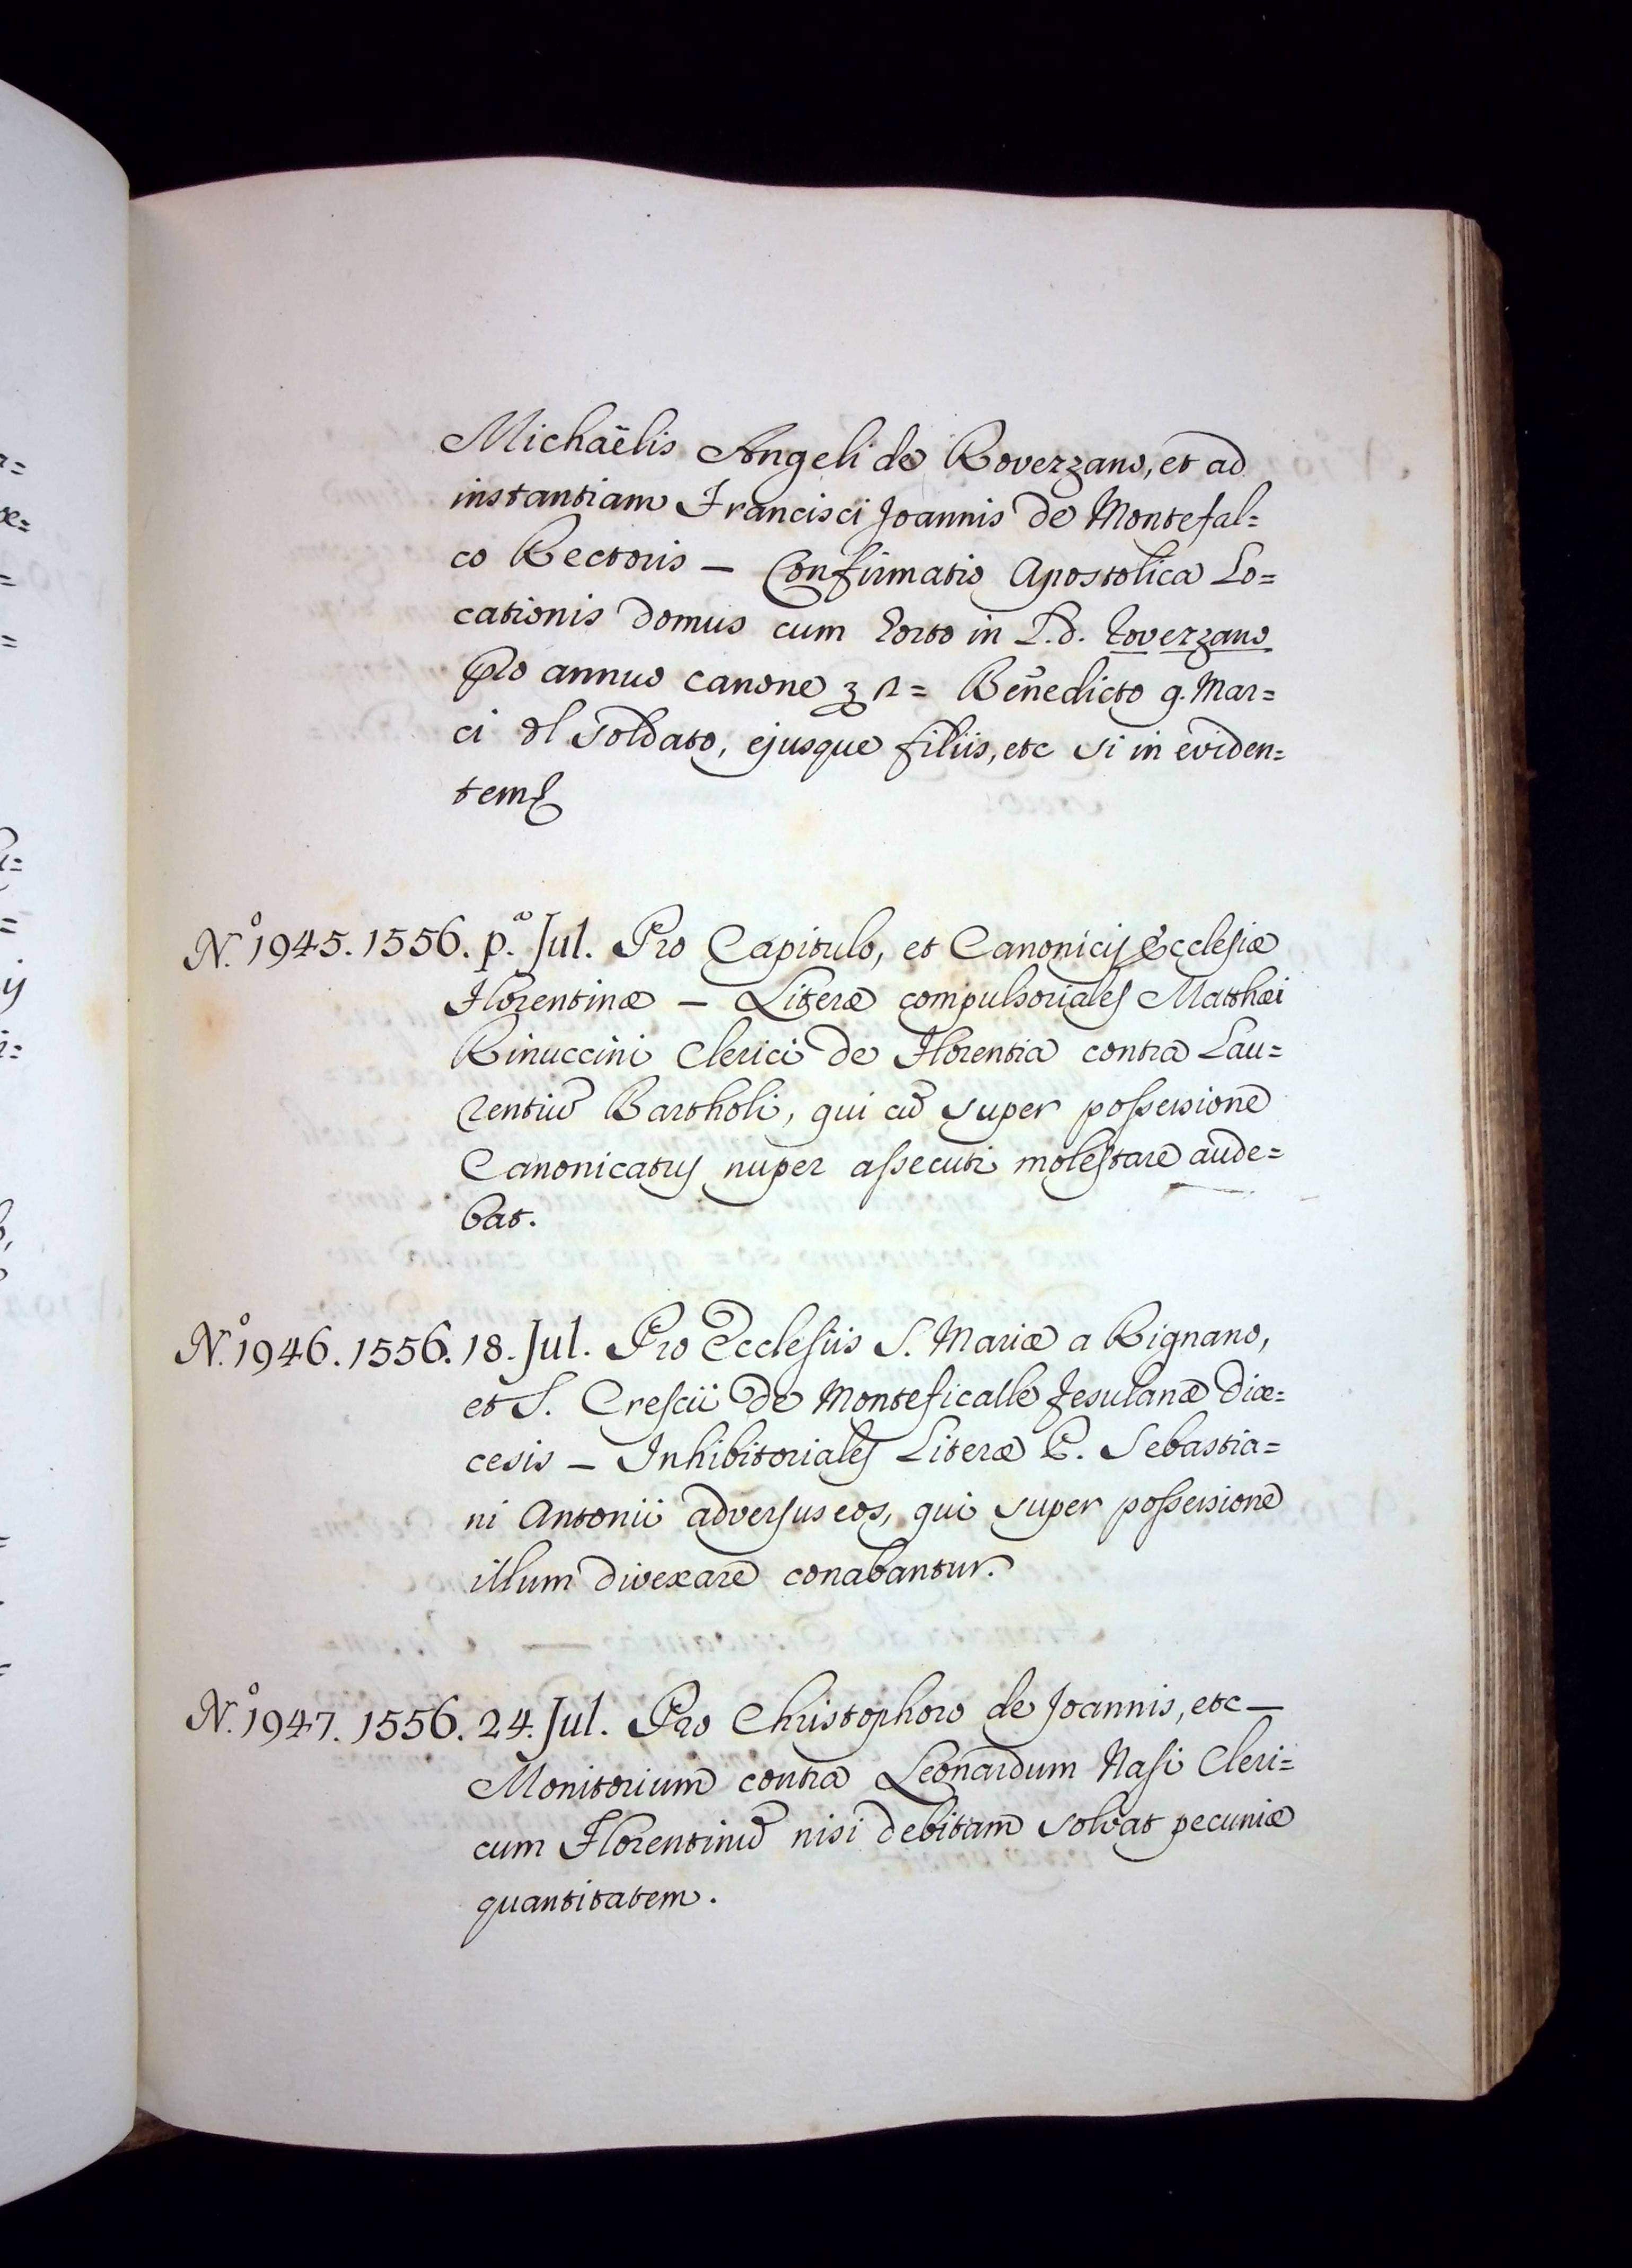 Michaëlis Angeli de Roverzano, et ad
instantiam Francisci Joannis de Montefal=
co Rectoris — Confirmatio Apostolica Lo=
cationis domus cum horto in L.d. Roverzano
pro annuo canone Benedicto q. Mar=
ci dl Soldato, ejusque filiis, etc si in eviden=
tem
N.º 1945. 1556. p.ª Jul. Pro Capitulo, et Canonicis Ecclesiæ
Florentinæ — Literæ compulsoriales Matthæi
Rinuccini Clerici de Florentia contra Lau=
rentiū Bartholi, qui eū super possessionē
Canonicatus nuper assecuti molestare aude=
bat.
N.º 1946. 1556. 18. Jul. Pro Ecclesiis S. Mariæ a Rignano,
et S. Crescii de Monteficalle Fesulanæ Diœ=
cesis — Inhibitoriales Literæ P. Sebastia=
ni Antonii adversus eos, qui super possessionē
illum divexare conabantur.
N.º 1947. 1556. 24. Jul. Pro Christophoro de Joannis, etc —
Monitorium contra Leonardum Nasi Cleri=
cum Florentinū nisi debitam solvat pecuniæ
quantitatem.